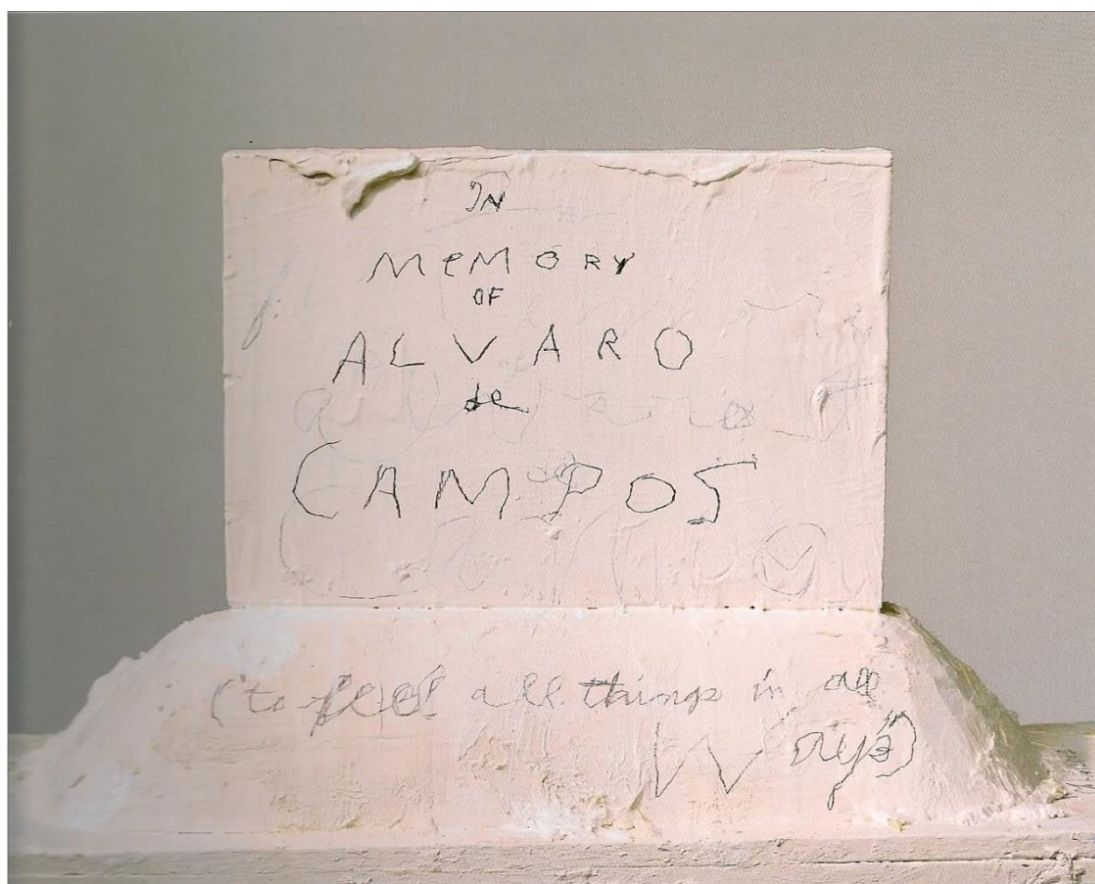 IN
MeMORY
OF
ALVARO
de
CAMPOS
(to feel all things in all
Ways)